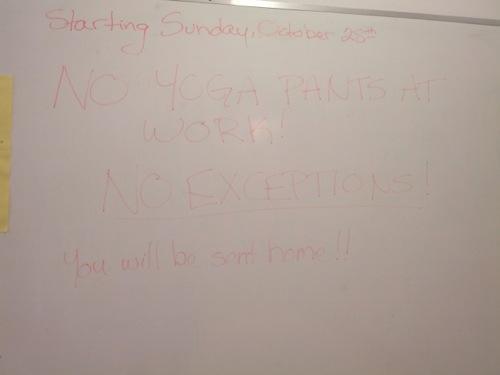 Starting Sunday, October 25th
NO YOGA PANTS AT
WORK!
NO EXCEPTIONS!
You will be sent home!!